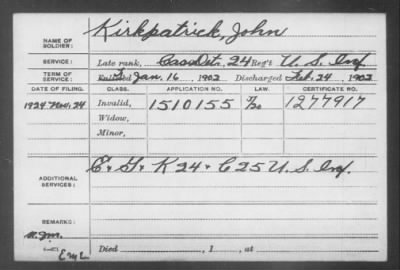 NAME OF SOLDIER: Kirkpatrick, John
SERVICE: Late rank, Cas. Det. 24 Reg't U. S. Inf
TERM OF SERVICE: Enlisted Jan. 16, 1902 Discharged Feb. 24, 1902
DATE OF FILING. CLASS. APPLICATION NO. LAW. CERTIFICATE NO.
1924 Nov. 24 Invalid, 1510155 1277917
Widow,
Minor,
ADDITIONAL SERVICES: C + G + K 24 + C 25 U. S. Inf.
REMARKS:
Died , 1 , at